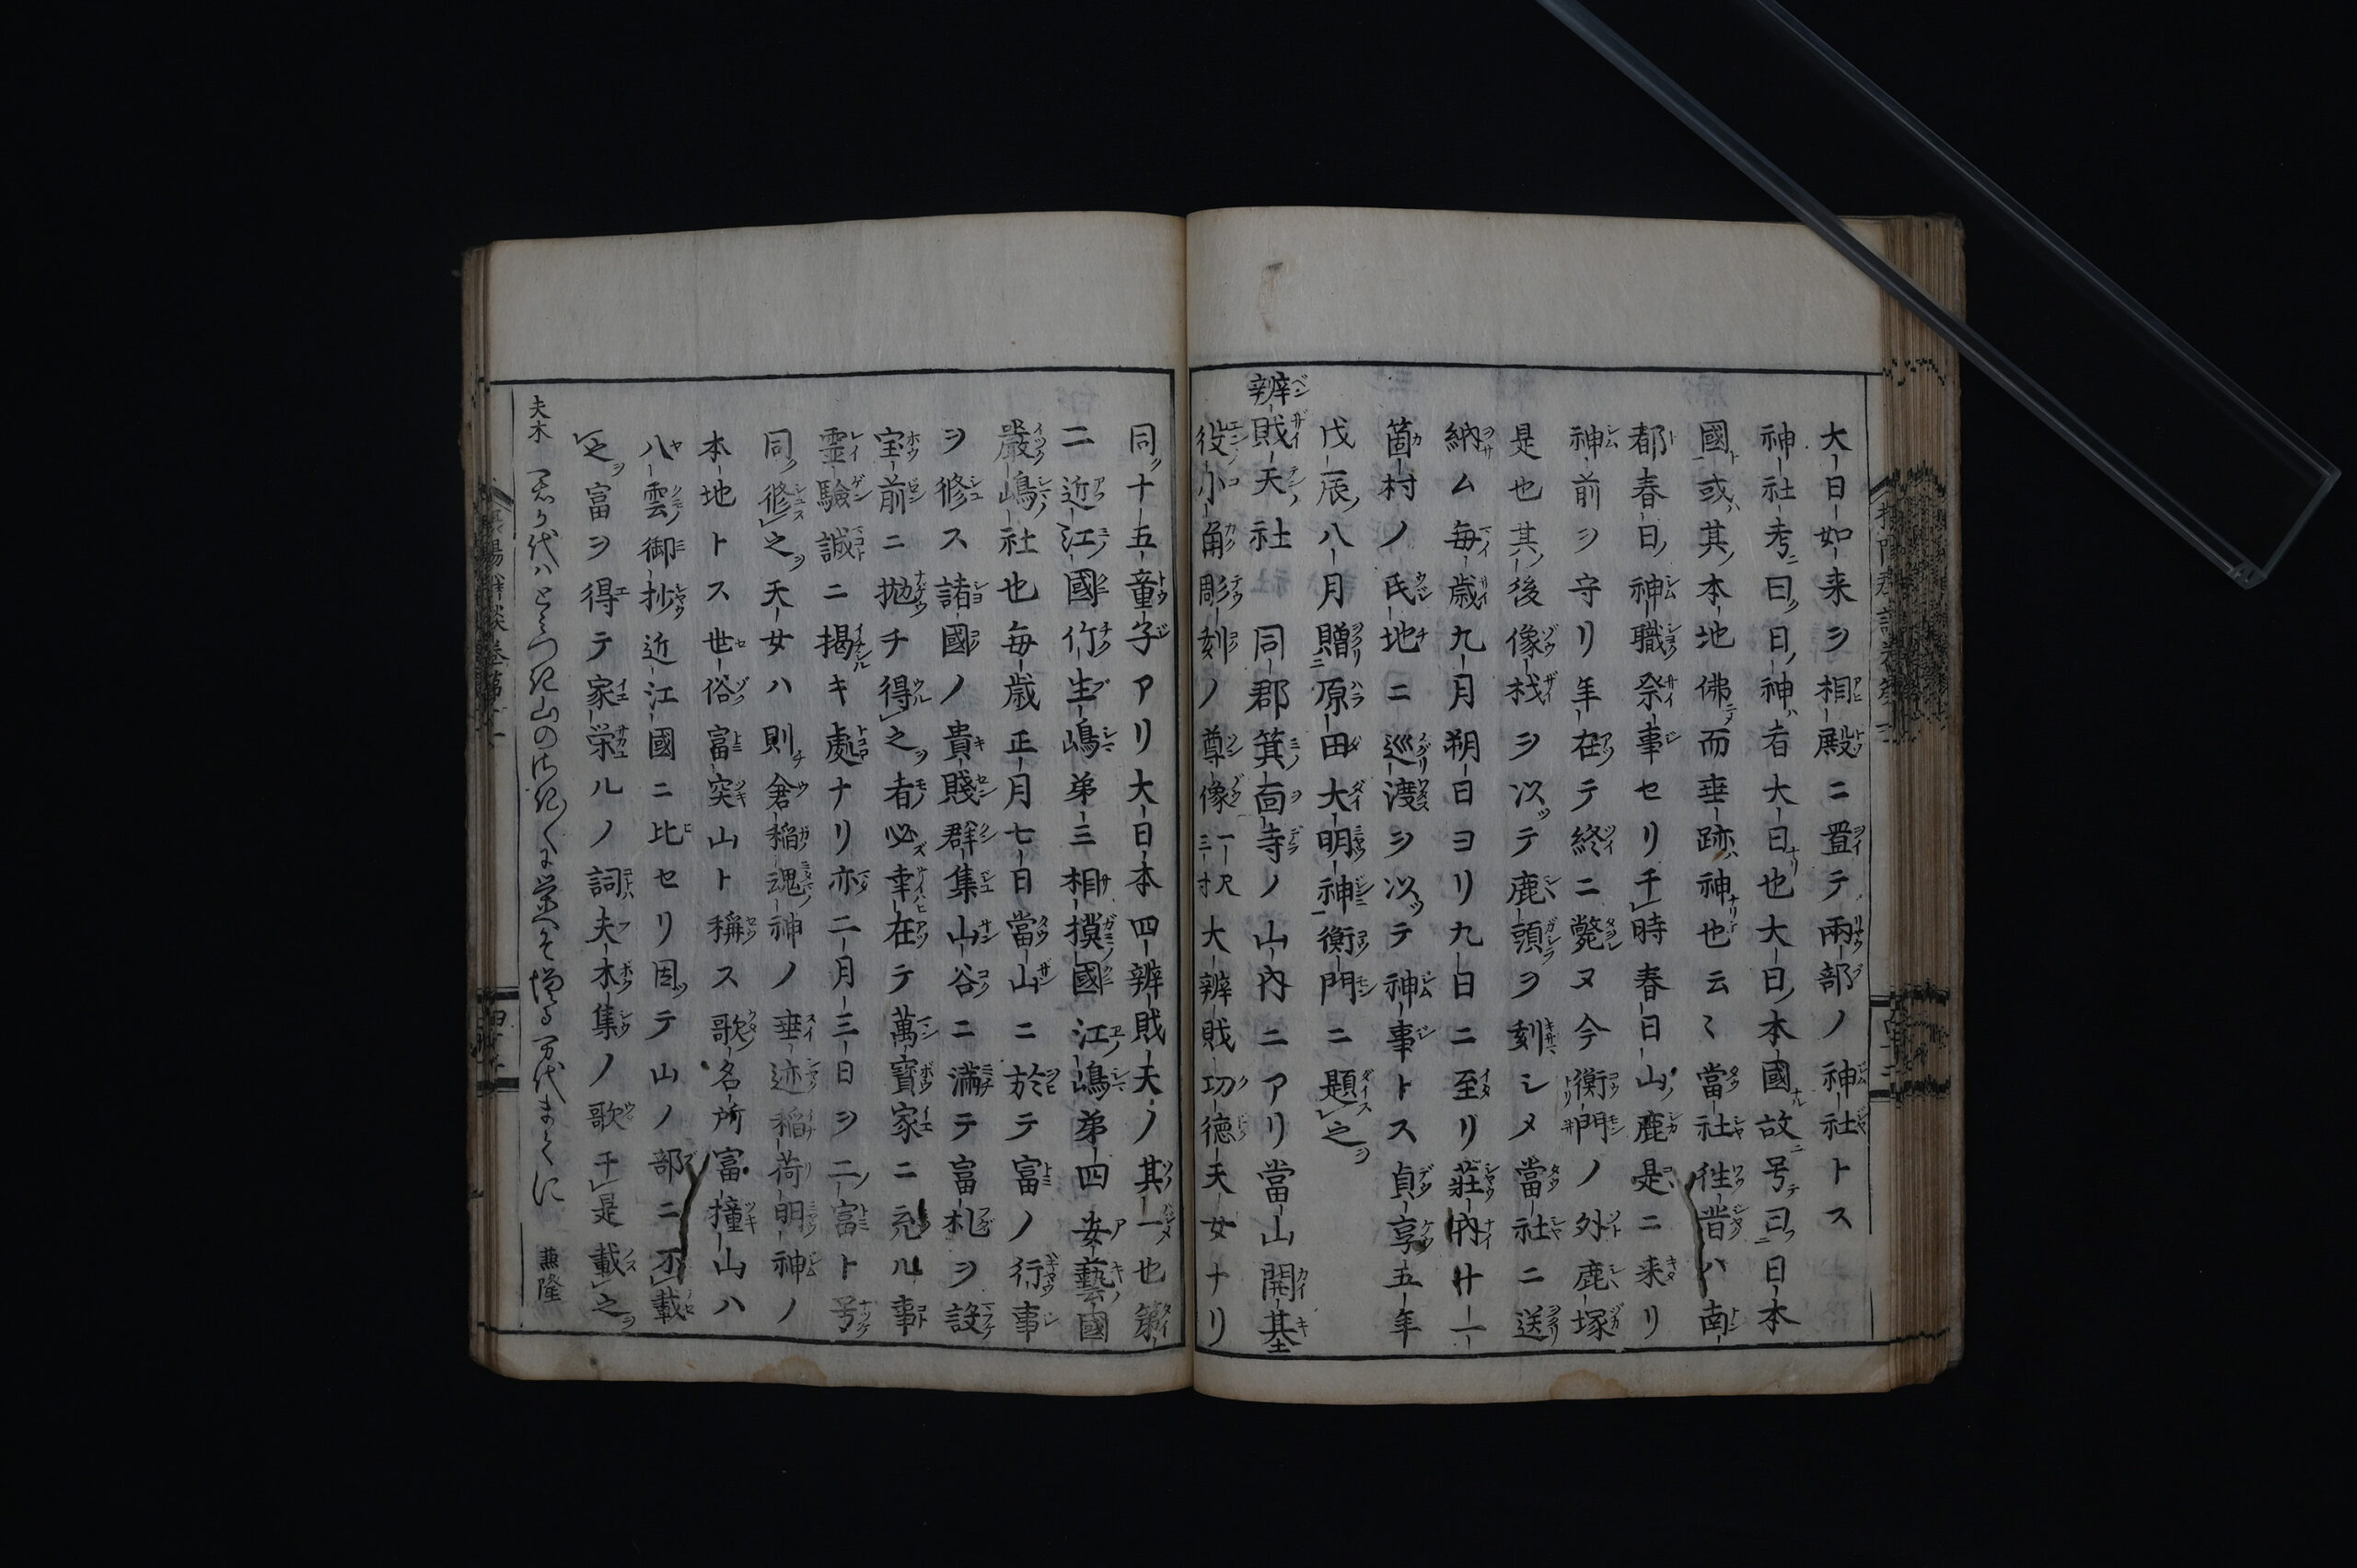 大日如来ヲ相殿ニ置テ兩部ノ神社トス
神社考ニ曰ク日ノ神ハ者大日也大日ノ本國故ニ号テ曰フ日本
國ト或ハ其ノ本地佛ニテ而垂跡ハ神也云〻當社徃昔ハ南
都春日ノ神職祭事セリ于時春日山ノ鹿是ニ来リ
神前ヲ守リ年在テ終ニ斃ヌ今衡門ノ外鹿塚
是也其ノ後像材ヲ以テ鹿頭ヲ刻シメ當社ニ送
納ム毎歳九月朔日ヨリ九日ニ至リ莊内廿一
箇村ノ氏地ニ巡渡ヲ以テ神事トス貞享五年
戊辰ノ八月贈原田大明神衡門ニ題之ヲ
辨財天ノ社 同郡箕面寺ノ山内ニアリ當山開基
役小角彫刻ノ尊像一尺三寸大辨財功徳天女ナリ
同ク十五童子アリ大日本四辨財天ノ其一也第
二近江國竹生嶋弟三相摸國江嶋弟四安藝國
嚴嶋社也毎歳正月七日當山ニ於テ富ノ行事
ヲ修ス諸國ノ貴賤群集山谷ニ滿テ富札ヲ設
宝前ニ抛チ得之ヲ者必幸在テ萬寳家ニ充ル事
靈驗誠ニ掲キ處ナリ亦二月三日ヲ二ノ富ト号
同ク修之ヲ天女ハ則倉稲魂神ノ垂迹稲荷明神ノ
本地トス世俗富突山ト稱ス歌名所富撞山ハ
八雲御抄近江國ニ比セリ因テ山ノ部ニ不載
之ヲ富ヲ得テ家栄ルノ詞夫木集ノ歌于是載之ヲ
夫木 君か代ハとみつき山の 栄へそ増る万代まてに 兼隆